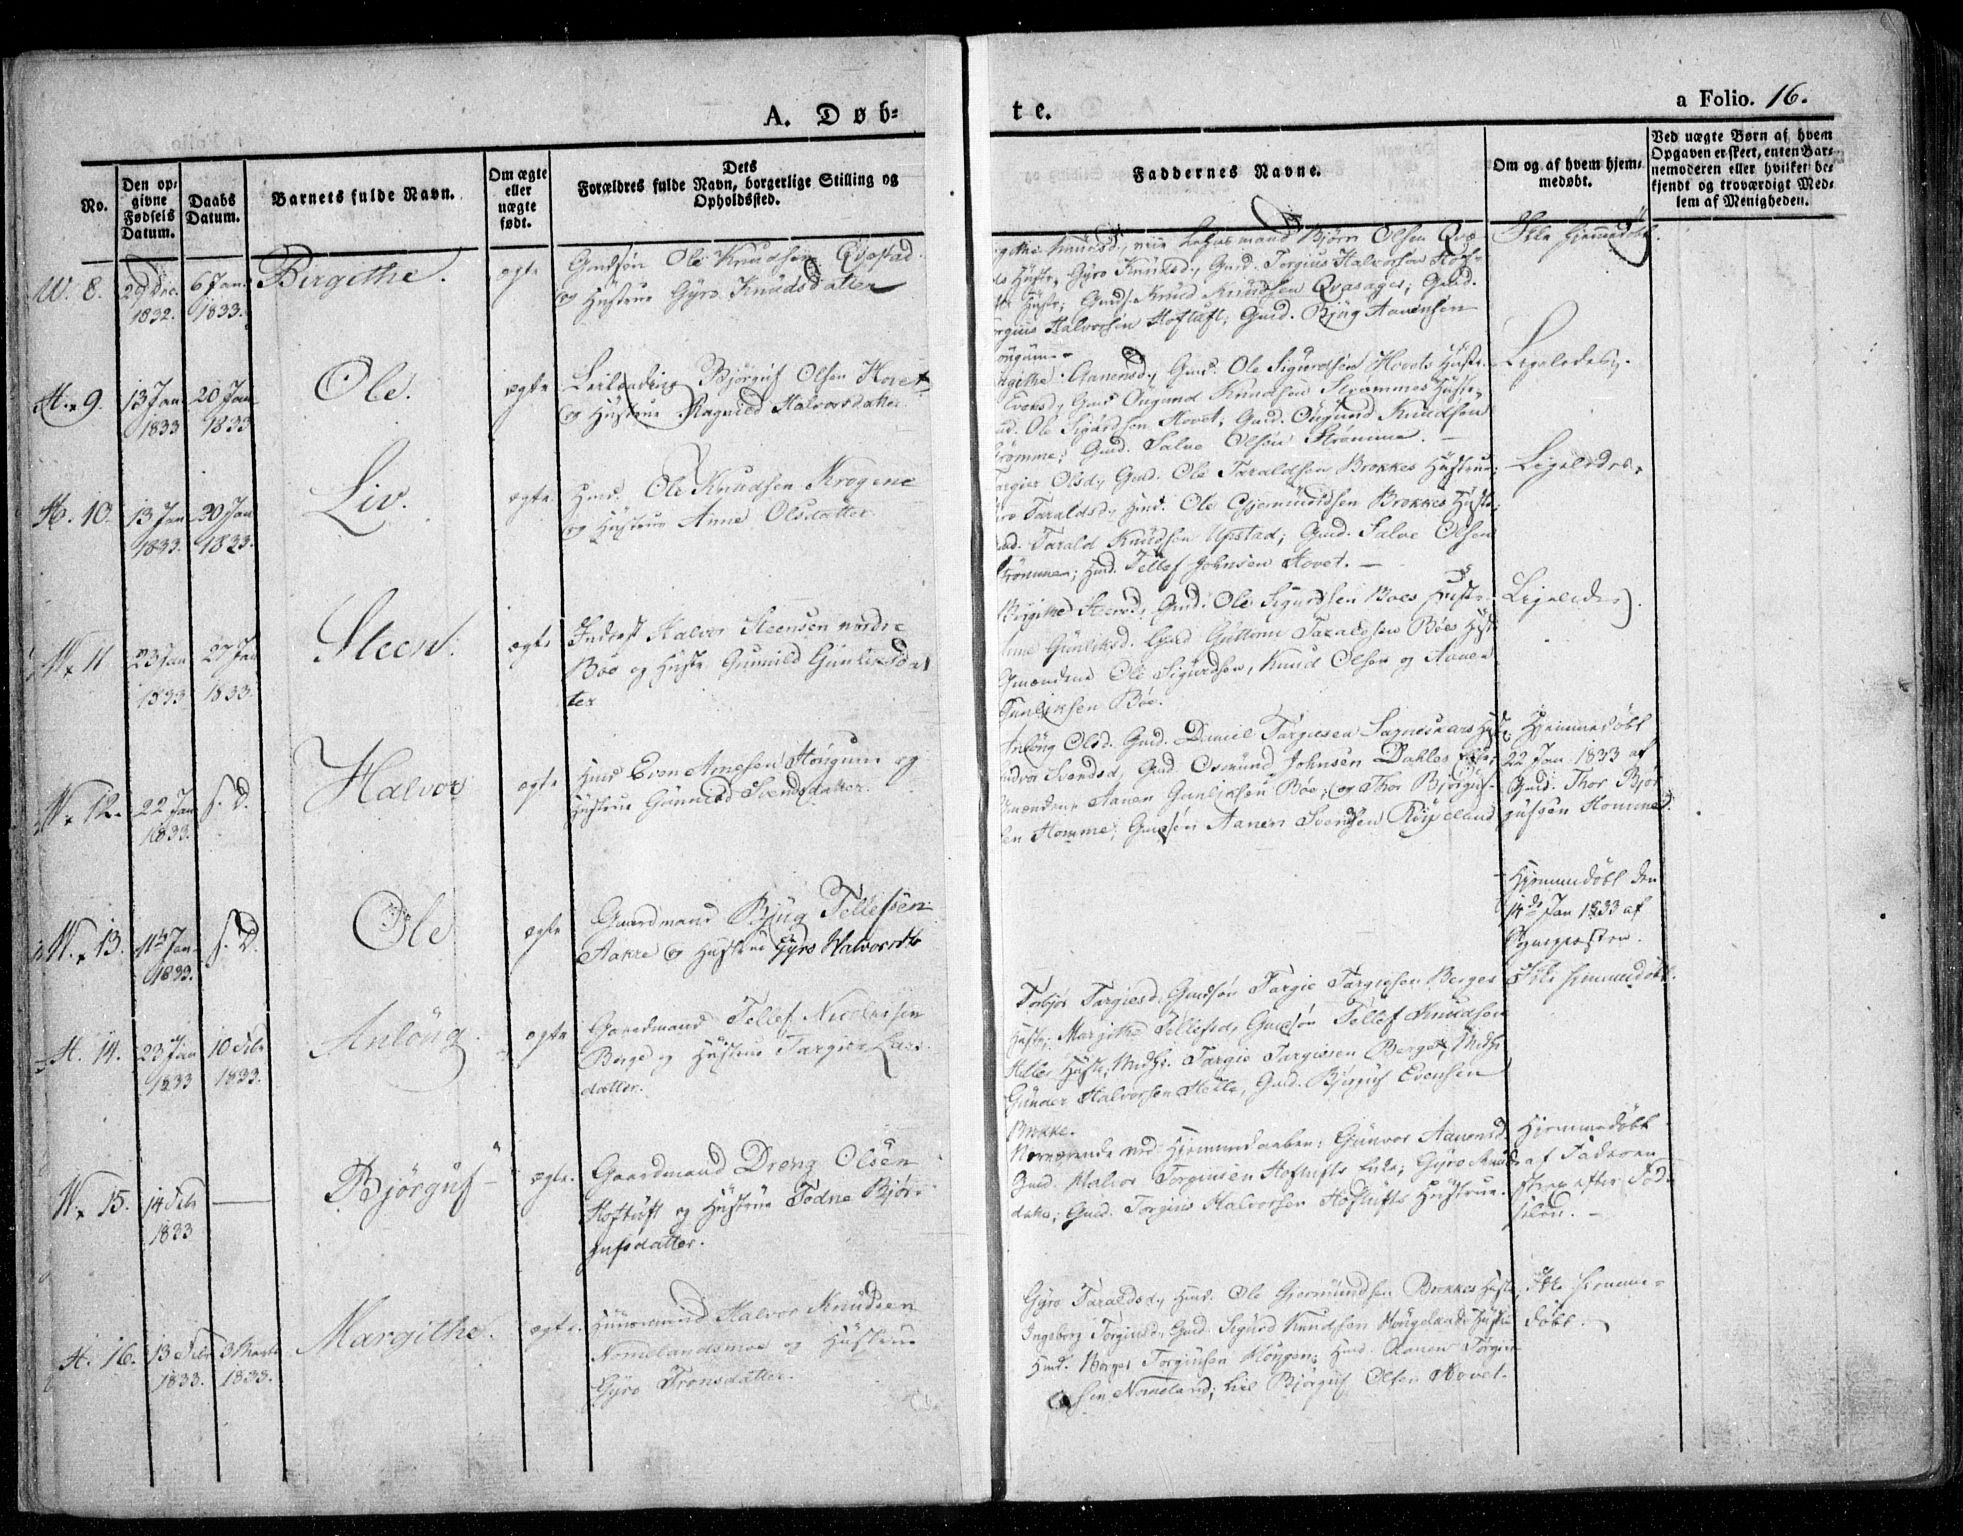 A. Døb-
te.
a Folio. 16.
No.
Den op-
givne
Fødsels
Datum.
Daabs
Datum.
Barnets fulde Navn.
Om ægte
eller
uægte
født.
Dets
Forældres fulde Navn, borgerlige Stilling og
Opholdssted.
Faddernes Navne.
Om og af hvem hjem-
medøbt.
Ved uægte Børn af hvem
Opgaven er skeet, enten Bar-
nemoderen eller hvilket be-
kjendt og troværdigt Med-
lem af Menigheden.
8.
29 Dec.
1832.
6 Jan.
1833.
Birgithe.
ægte
Gmdsøn Ole Knudsen
og Hustrue Gyro Knudsdatter
Knudsd., Bjørn Olsen
Hustr, Gyro Knudsd., Gmd. Torgius Halvorsen
Hustr; Gmds. Knud Knudsen Gmd.
Halvorsen Hoftuft; Gmd. Bjørg Aanensen
Ikke hjemmedøbt.
9.
13 Jan
1833
20 Jan
1833
Ole.
ægte
Leilænding Bjørguf Olsen Hovet
og Hustrue Ragnild Halvorsdatter
Aanensd., Gmd. Ole Sigurdsen Hovets Hustr.
Gmd Ougund Knudsen Strømmes Hustr.
Ole Sigurdsen Hovet; Gmd. Ougund Knudsen
Strømme; Gmd. Salve Olsen Strømme.
Ligeledes.
10.
13 Jan
1833.
30 Jan
1833.
Liv.
ægte
Hmd. Ole Knudsen Krogene
og Hustrue Anne Olsdatter.
Olsd., Gmd. Ole Taraldsen Brokkes Hustrue;
Taraldsd., Hmd. Ole Gjermundsen Brokkes Hustr;
Gmd. Tarald Knudsen Upstad; Gmd. Salve Olsen
Strømme; Hmd. Tellef Johnsen Hovet.
Ligeledes.
11.
23 Jan
1833
27 Jan
1833.
Steen.
ægte
Inderst Halvor Steensen nordre
Bøe og Hustr Gunnild Gunleiksdat
ter
Birgithe Steensd., Gmd. Ole Sigurdsen Bøes Hustr.
Gunleiksd. Gmd Guttorm Taraldsen Bøes Hustr
Gmændene Ole Sigurdsen, Knud Olsen og Aanen
Gunleiksen Bøe.
Ligeledes.
12.
22 Jan
1833.
s. D.
Halvor
ægte
Hmd Even Arnesen Hougum og
Hustrue Gunnild Svendsdatter.
Anlaug Olsd. Gmd. Daniel Torgiesen
Svendsd, Gmd Osmund Johnsen Dahles
Gmændene Aanen Gunleiksen Bøe; og Thor Bjørguf-
sen Homme; Gmdsøn Aanen Svendsen Rüpeland
Hjemmedøbt
22 Jan 1833 af
Gmd. Thor Bjør-
gufsen Homme.
13.
11te Jan.
1833.
s. D.
Ole
ægte
Gaardmand Bjug Tellefsen
Aakre og Hustrue Gyro Halvorsdtr
Hjemmedøbt den
14de Jan 1833 af
Sognepresten.
14.
23 Jan
1833
10 Febr
1833.
Anløug.
ægte
Gaardmand Tellef Nicolaisen
Berge og Hustrue Targier Lars-
datter.
Torbjør Targiesd., Gmdsøn Targie Targiesen Berges
Hustr; Margithe Tellefsd., Gmdsøn Tellef Knudsen
Helles Hustr; Targie Targiesen Berge;
Gunder Halvorsen Helle, Gmd. Bjørguf Evensen
Brokke.
Ikke hjemmedøbt.
15.
14 Febr
1833
Bjørguf
ægte.
Gaardmand Dreng Olsen
Hoftuft og Hustrue Todne Bjør-
gufsdatter.
Nærværende ved Hjemmedaaben: Gunvor Aanensd.
Gmd. Halvor Torgiusen Hoftufts Enke; Gyro Knuds-
datter; Gmd. Torgius Halvorsen Hoftufts Hustrue.
Hjemmedøbt
af Faderen
strax efter Fød-
selen.
16.
13 Febr
1833.
3 Marts
1833.
Margithe.
ægte.
Huusmand Halvor Knudsen
Nomelandsmoe og Hustrue
Gyro Tronsdatter.
Gyro Taraldsd., Hmd. Ole Gjermundsen Brokkes Hustr,
Ingeborg Torgiusd., Gmd. Sigurd Knudsen Houglands Hustr
Hmd. Børger Torgiusen Haugen; Hmd. Aanen Torgiu-
sen Nomeland; Bjørguf Olsen Hovet.
Ikke hjemme-
døbt.